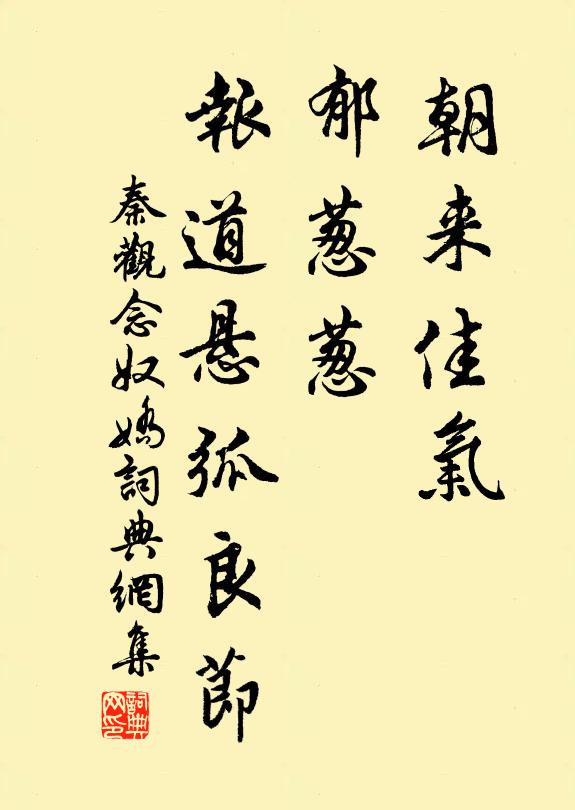 朝来佳氣
郁葱葱
報道悬弧良節
秦觀念奴嬌詞典網集
詞典网印